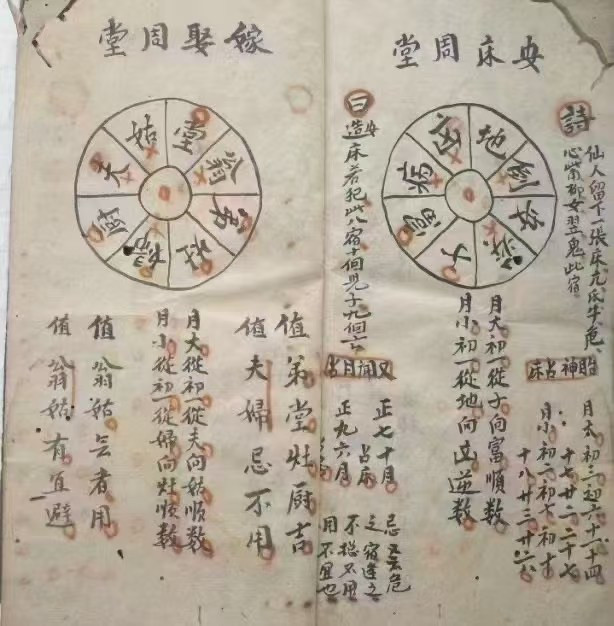 安床周堂
詩
仙人留下一張床亢氐牛危
心紫卯女翌鬼此宿
曰
安
造床若犯此八宿十個児子九個亡
地
剑
安
子
富
病
凶
胎神占床
月大初三初六十一十四
十七廿二二十七
月小初二初七初十
十八廿三廿六
月大初一從子向富順数
月小初一從地向凶逆数
又閙月占
正七十月
占床
正九六月
忌
之宿逢之
不稳只用
用不宜也
嫁娶周堂
堂
翁
弟
灶
婦
厨
夫
姑
值弟堂灶厨吉
值夫婦忌不用
月大從初一從夫向姑順数
月小從初一從婦向灶順数
值翁姑無者用
值翁姑有宜避